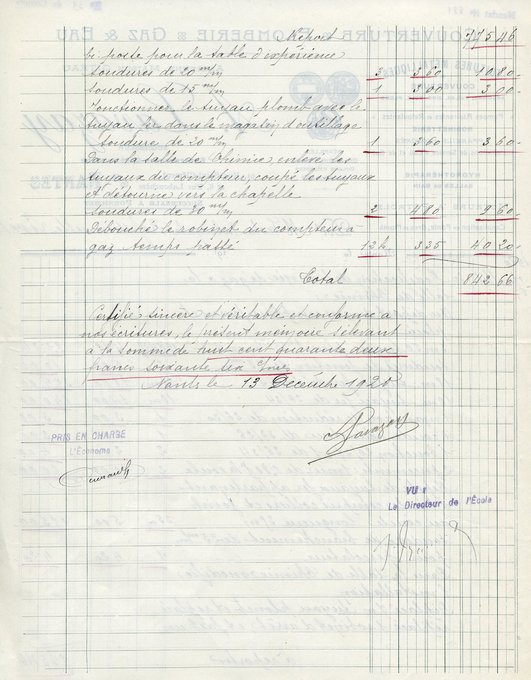 Report 775.46
bi-poste pour la table d'expérience
Soudures de 20 m/m 3 3.60 10.80
Soudures de 15 m/m 1 3.00 3.00
tuyau fer dans le magasin d'outillage
Soudure de 20 m/m 1 3.60 3.60
Dans la salle de Chimie enlevé les
tuyaux du compteur, coupé les tuyaux
et détourné vers la chapelle
Soudures de 30 m/m 2 4.80 9.60
Débouché le robinet du compteur à
gaz temps passé 12 h 3.35 40.20
Total 842.66
Certifié sincère et véritable et conforme à
nos écritures, le présent mémoire s'élevant
à la somme de huit cent quarante deux
francs soixante six
Nantes le 13 Décembre 1920
PRIS EN CHARGE
L'Économe
VU :
Le Directeur de l'École